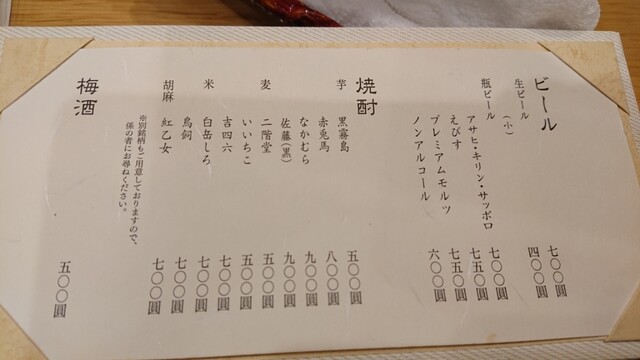 ビール
生ビール 七〇〇圓
(小) 四〇〇圓
瓶ビール
アサヒ・キリン・サッポロ 七〇〇圓
えびす 七五〇圓
プレミアムモルツ 七五〇圓
ノンアルコール 六〇〇圓
焼酎
芋 黒霧島 五〇〇圓
赤兎馬 八〇〇圓
なかむら 九〇〇圓
佐藤(黒) 九〇〇圓
麦 二階堂 五〇〇圓
いいちこ 五〇〇圓
吉四六 七〇〇圓
米 白岳しろ 七〇〇圓
鳥飼 七〇〇圓
胡麻 紅乙女 七〇〇圓
※別銘柄もご用意しておりますので、
係の者にお尋ねください。
梅酒 五〇〇圓